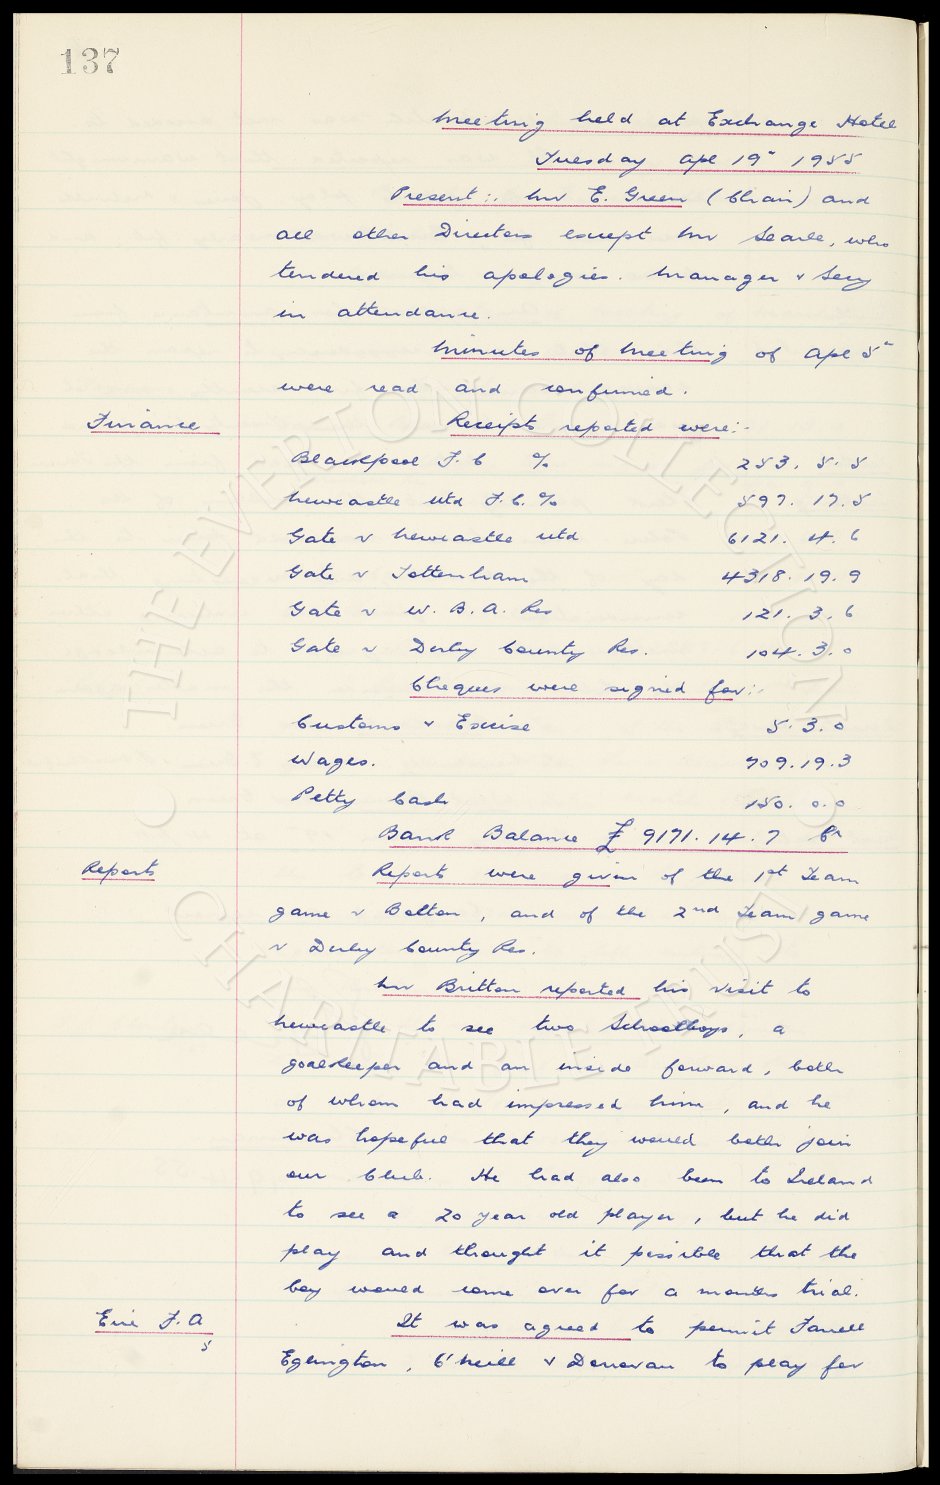 137
Meeting held at Exchange Hotel
Tuesday Apl 19" 1955
Present:. Mr E. Green (Chair) and
all other Directors except Mr Searle, who
tendered his apologies. Manager & Secy
in attendance.
Minutes of Meeting of Apl 5"
were read and confirmed.
Finance
Receipts reported were:-
Blackpool F. C % 253. 5. 5
Newcastle Utd F. C. % 597. 17. 5
Gate v Newcastle Utd 6121. 4. 6
Gate v Tottenham 4318. 19. 9
Gate v W. B. A. Res 121. 3. 6
Gate v Derby County Res. 104. 3. 0
Cheques were signed for:-
Customs & Excise 5. 3. 0
Wages. 709. 19. 3
Petty Cash 150. 0. 0
Bank Balance £ 9171. 14. 7 Cr
Reports
Reports were given of the 1st Team
game v Bolton, and of the 2nd Team game
v Derby County Res.
Mr Britton reported his visit to
Newcastle to see two Schoolboys, a
goalkeeper and an inside forward, both
of whom had impressed him, and he
was hopeful that they would both join
our Club. He had also been to Ireland
to see a 20 year old player, but he did
play and thought it possible that the
boy would come over for a months trial.
Eire F. A
5
It was agreed to permit Farrell
Eglington, O'Neill & Donovan to play for
© THE EVERTON COLLECTION CHARITABLE TRUST